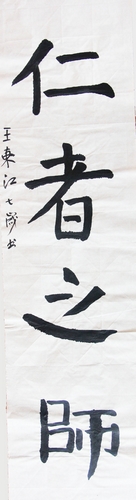 仁者之師
王東江七歲書